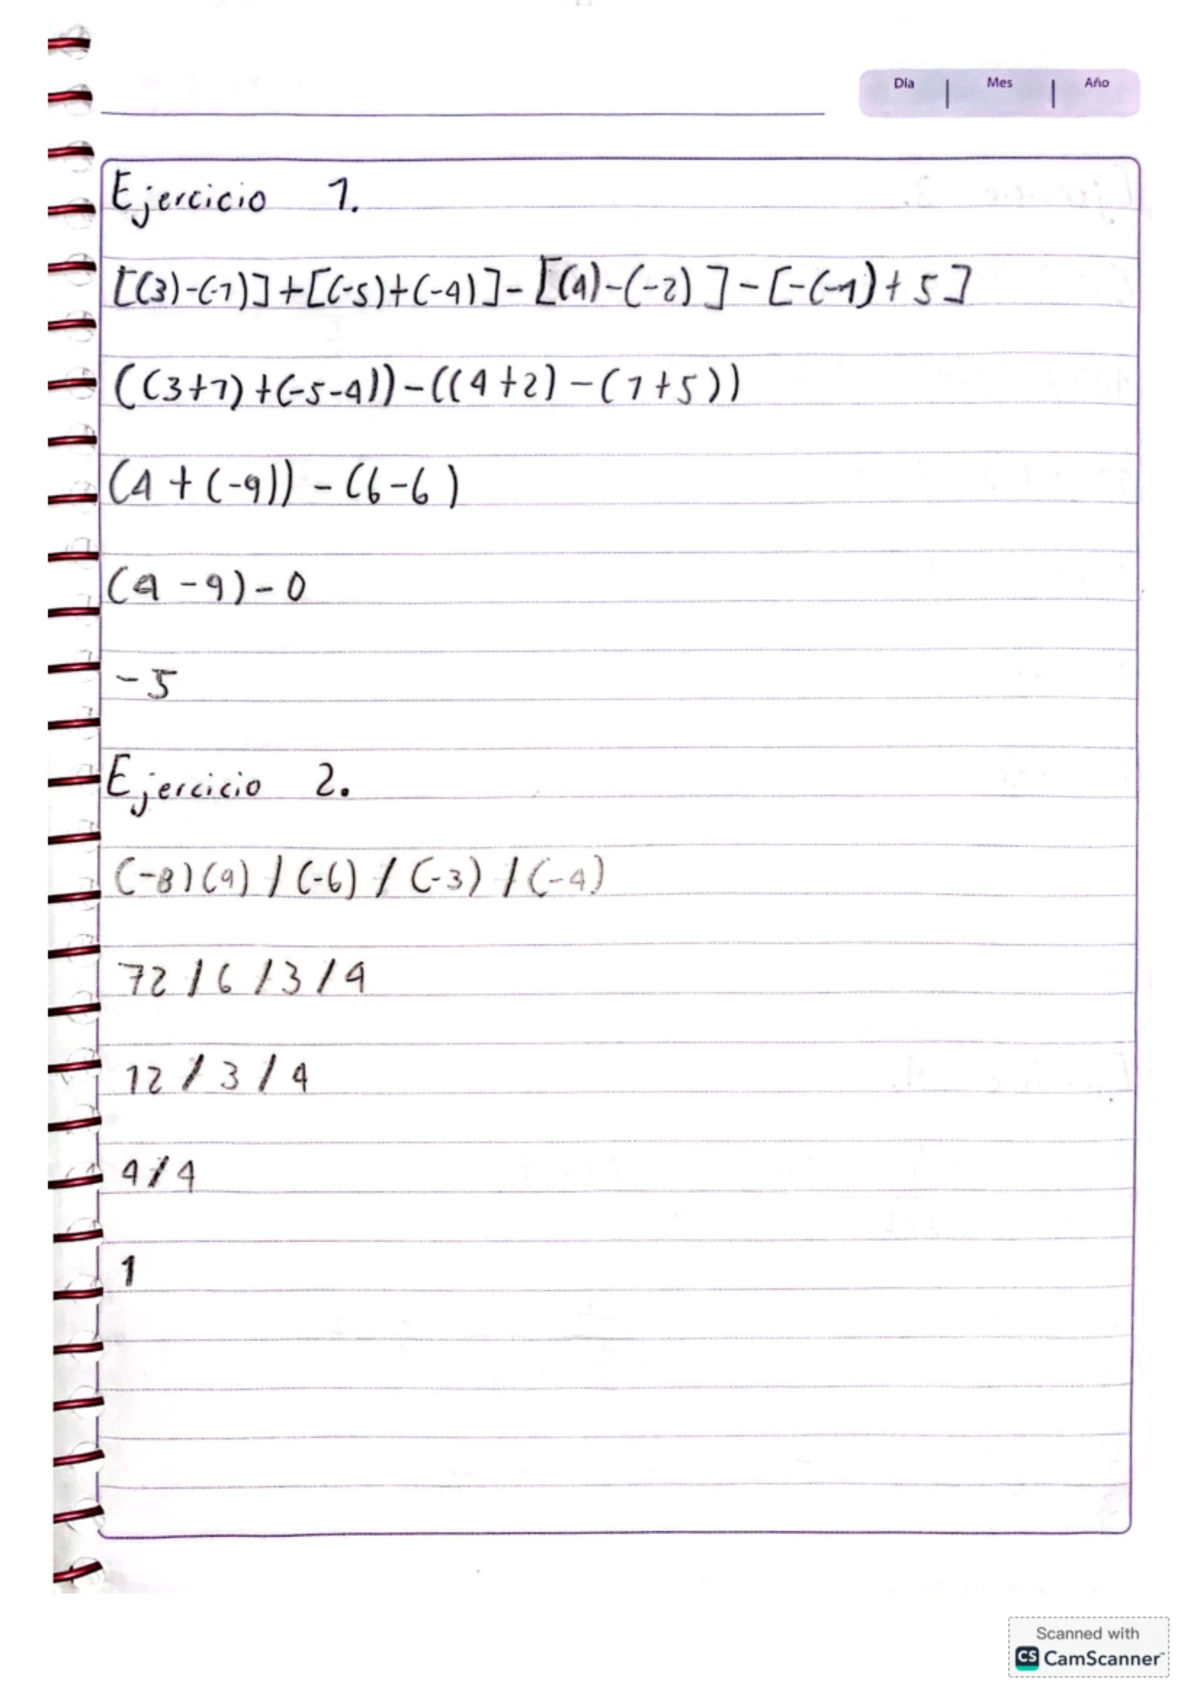 Día | Mes | Año
Ejercicio 1.
[(3)-(-1)]+[(-5)+(-4)]-[(4)-(-2)]-[-(-1)+5]
((3+1)+(-5-4))-((4+2)-(1+5))
(4+(-9))-(6-6)
(4-9)-0
-5
Ejercicio 2.
(-8)(9)/(-6)/(-3)/(-4)
72/6/3/4
12/3/4
4/4
1
Scanned with
CS CamScanner